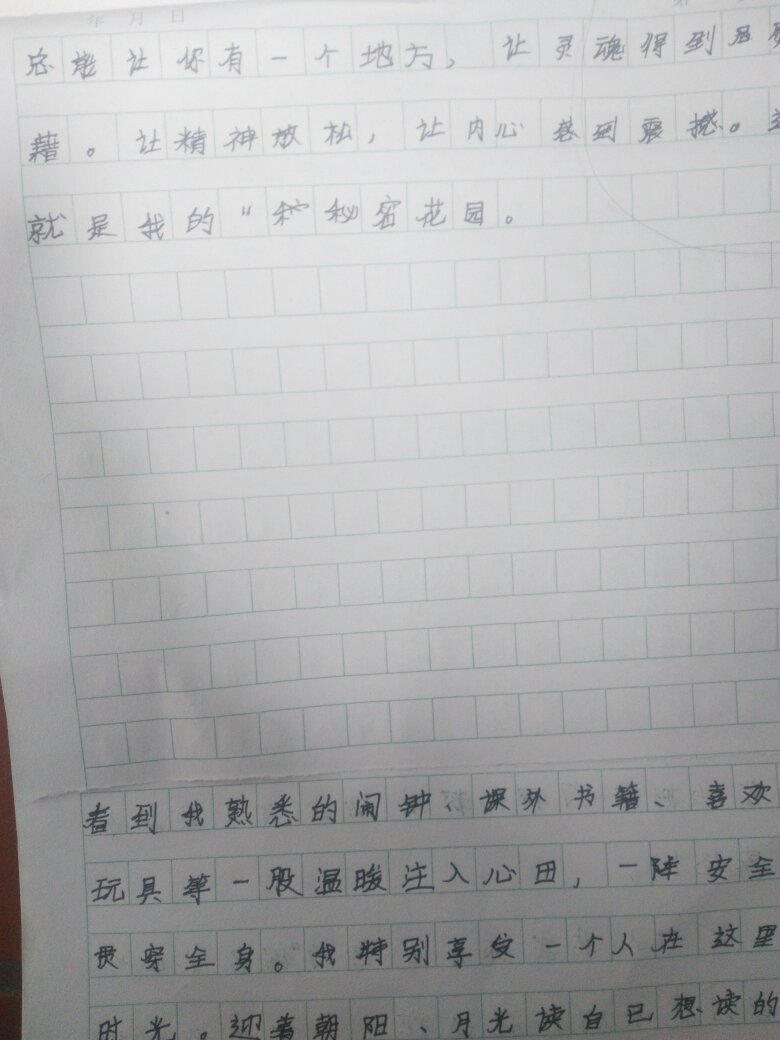 年 月 日 第
总能让你有一个地方，让灵魂得到慰
藉。让精神放松，让内心感到震撼。这
就是我的“秘密花园。
看到我熟悉的闹钟、课外书籍、喜欢
玩具等一股温暖注入心田，一阵安全
贯穿全身。我特别享受一个人在这里
时光。迎着朝阳、月光读自己想读的